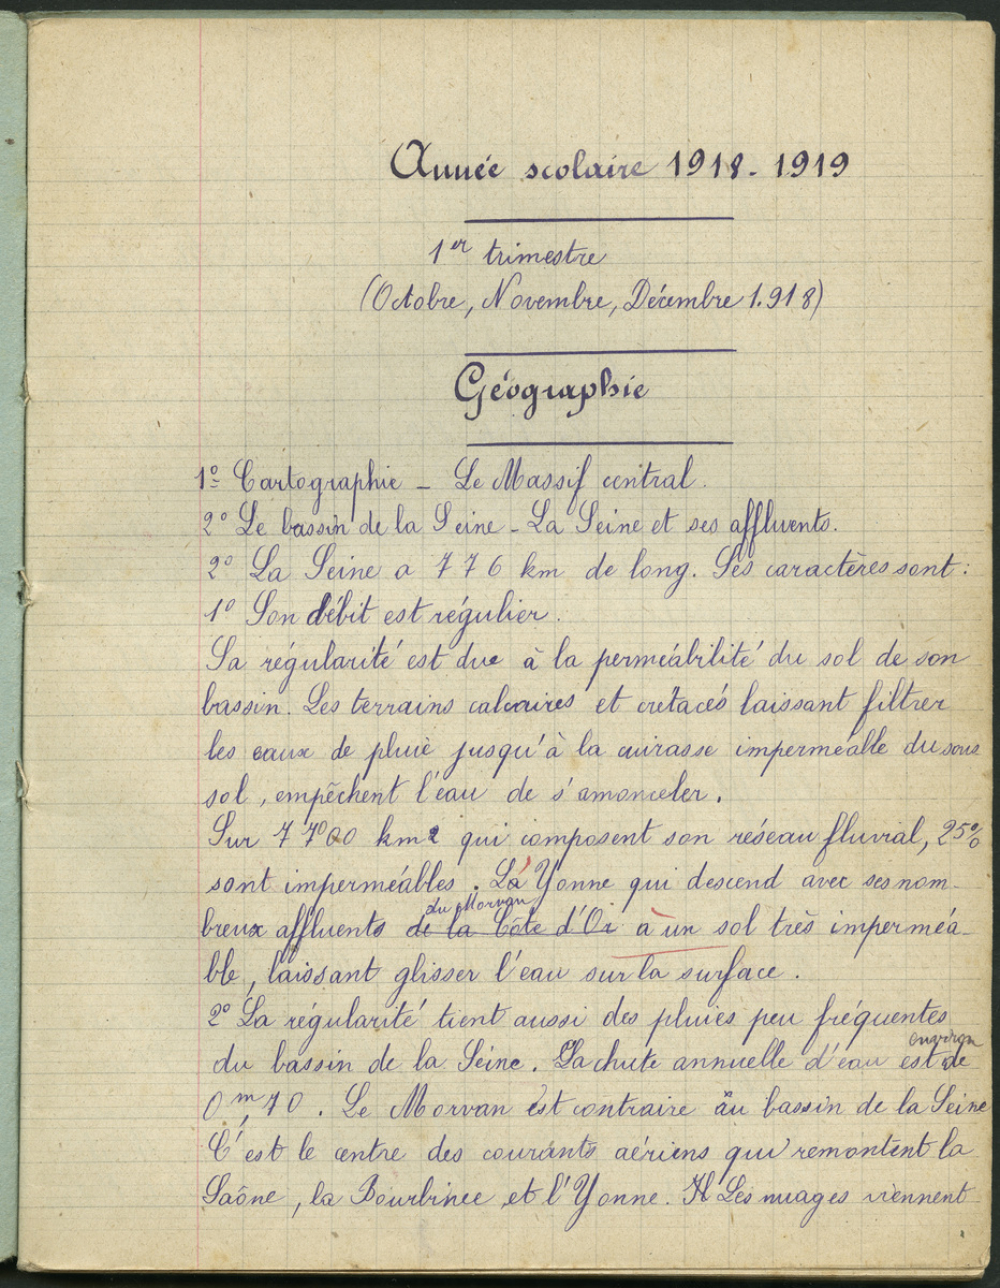 Année scolaire 1918-1919
1er trimestre
(Octobre, Novembre, Décembre 1.918)
Géographie
1° Cartographie - Le Massif central.
2° Le bassin de la Seine - La Seine et ses affluents.
2° La Seine a 776 km de long. Ses caractères sont :
1° Son débit est régulier.
Sa régularité est due à la perméabilité du sol de son
bassin. Les terrains calcaires et crétacés laissant filtrer
les eaux de pluie jusqu'à la cuirasse imperméable du sous
sol, empêchent l'eau de s'amonceler.
Sur 77000 km2 qui composent son réseau fluvial, 25%
sont imperméables. La Yonne qui descend avec ses nom-
du Morvan
breux affluents de la Côte d'Or a un sol très imperméa-
ble, laissant glisser l'eau sur la surface.
2° La régularité tient aussi des pluies peu fréquentes
environ
du bassin de la Seine. La chute annuelle d'eau est de
0m,70. Le Morvan est contraire au bassin de la Seine
C'est le centre des courants aériens qui remontent la
Saône, la Bourbince et l'Yonne. Il Les nuages viennent